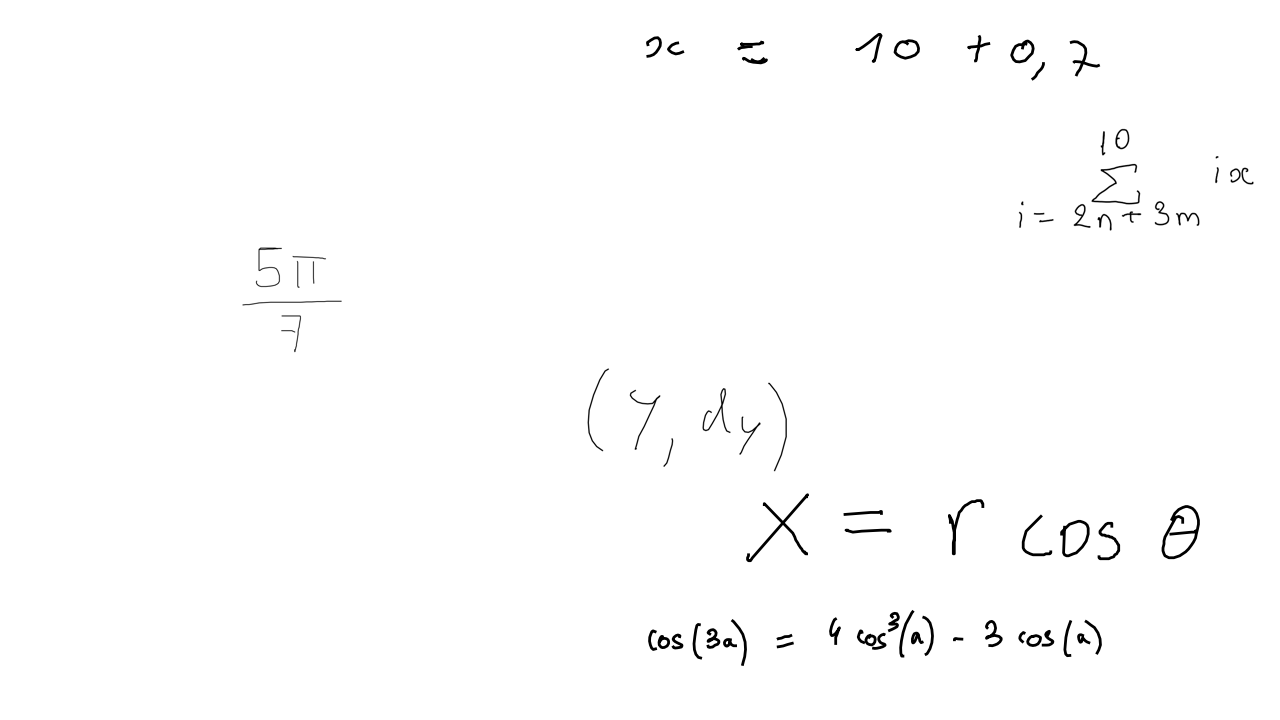 x = 10 + 0,7
\sum_{i=2n+3m}^{10} ix
\frac{5\pi}{7}
(y, dy)
X = r cos θ
cos(3a) = 4 cos³(a) - 3 cos(a)